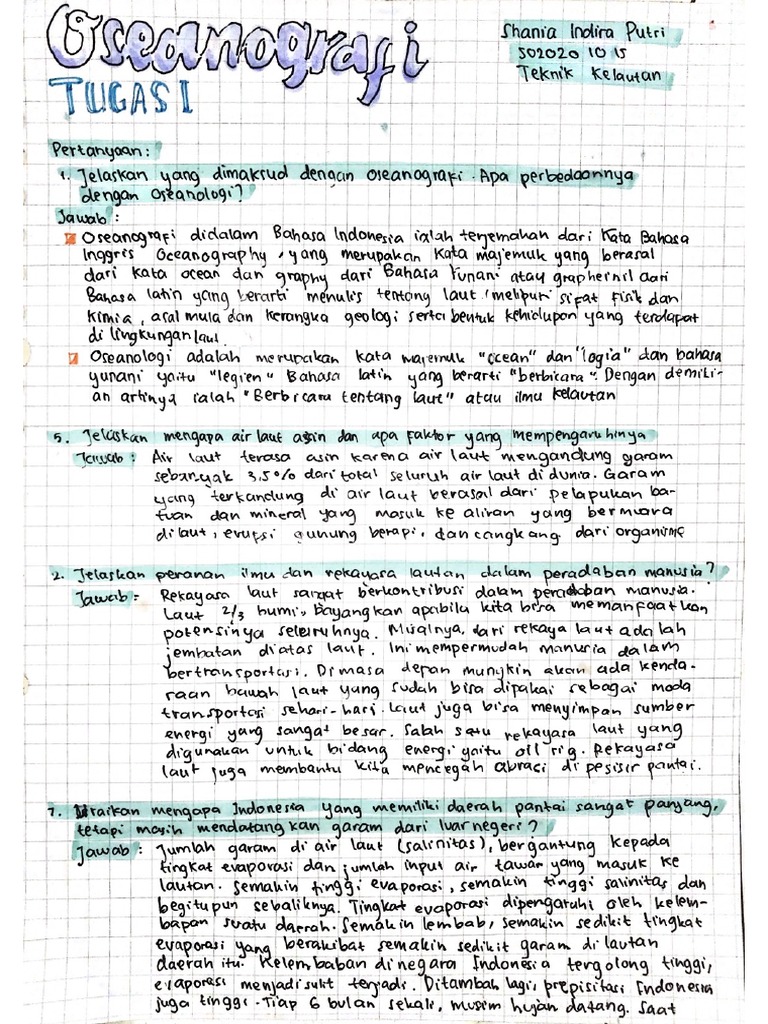 Oseanografi
TUGAS I
Shania Indira Putri
5020201015
Teknik Kelautan
Pertanyaan :
1. Jelaskan yang dimaksud dengan Oseanografi. Apa perbedaannya
dengan Oseanologi?
Jawab :
Oseanografi didalam Bahasa Indonesia ialah terjemahan dari Kata Bahasa
Inggris Oceanography, yang merupakan kata majemuk yang berasal
dari kata ocean dan graphy dari Bahasa Yunani atau graphein dari
Bahasa latin yang berarti menulis tentang laut meliputi sifat fisik dan
kimia, asal mula dan kerangka geologi serta bentuk kehidupan yang terdapat
di lingkungan laut.
Oseanologi adalah merupakan kata majemuk "ocean" dan "logia" dan bahasa
yunani yaitu "legien" Bahasa latin yang berarti "berbicara". Dengan demiki-
an artinya ialah "Berbicara tentang laut" atau ilmu kelautan
5. Jelaskan mengapa air laut asin dan apa faktor yang mempengaruhinya
Jawab : Air laut terasa asin karena air laut mengandung garam
sebanyak 3,5% dari total seluruh air laut di dunia. Garam
yang terkandung di air laut berasal dari pelapukan ba-
tuan dan mineral yang masuk ke aliran yang bermuara
di laut, erupsi gunung berapi, dan cangkang dari organisme
2. Jelaskan peranan ilmu dan rekayasa lautan dalam peradaban manusia?
Jawab : Rekayasa laut sangat berkontribusi dalam peradaban manusia.
Laut 2/3 bumi, bayangkan apabila kita bisa memanfaatkan
potensinya seluruhnya. Misalnya, dari rekaya laut adalah
jembatan diatas laut. Ini mempermudah manusia dalam
bertransportasi. Dimasa depan mungkin akan ada kenda-
raan bawah laut yang sudah bisa dipakai sebagai moda
transportasi sehari-hari. Laut juga bisa menyimpan sumber
energi yang sangat besar. Salah satu rekayasa laut yang
digunakan untuk bidang energi yaitu oil rig. Rekayasa
laut juga membantu kita mencegah abrasi di pesisir pantai.
7. Uraikan mengapa Indonesia yang memiliki daerah pantai sangat panjang,
tetapi masih mendatangkan garam dari luar negeri?
Jawab : Jumlah garam di air laut (salinitas), bergantung kepada
tingkat evaporasi dan jumlah input air tawar yang masuk ke
lautan. Semakin tinggi evaporasi, semakin tinggi salinitas dan
begitupun sebaliknya. Tingkat evaporasi dipengaruhi oleh kelem-
bapan suatu daerah. Semakin lembab, semakin sedikit tingkat
evaporasi yang berakibat semakin sedikit garam di lautan
daerah itu. Kelembaban di negara Indonesia tergolong tinggi,
evaporasi menjadi sulit terjadi. Ditambah lagi, prepisitasi Indonesia
juga tinggi. Tiap 6 bulan sekali, musim hujan datang. Saat